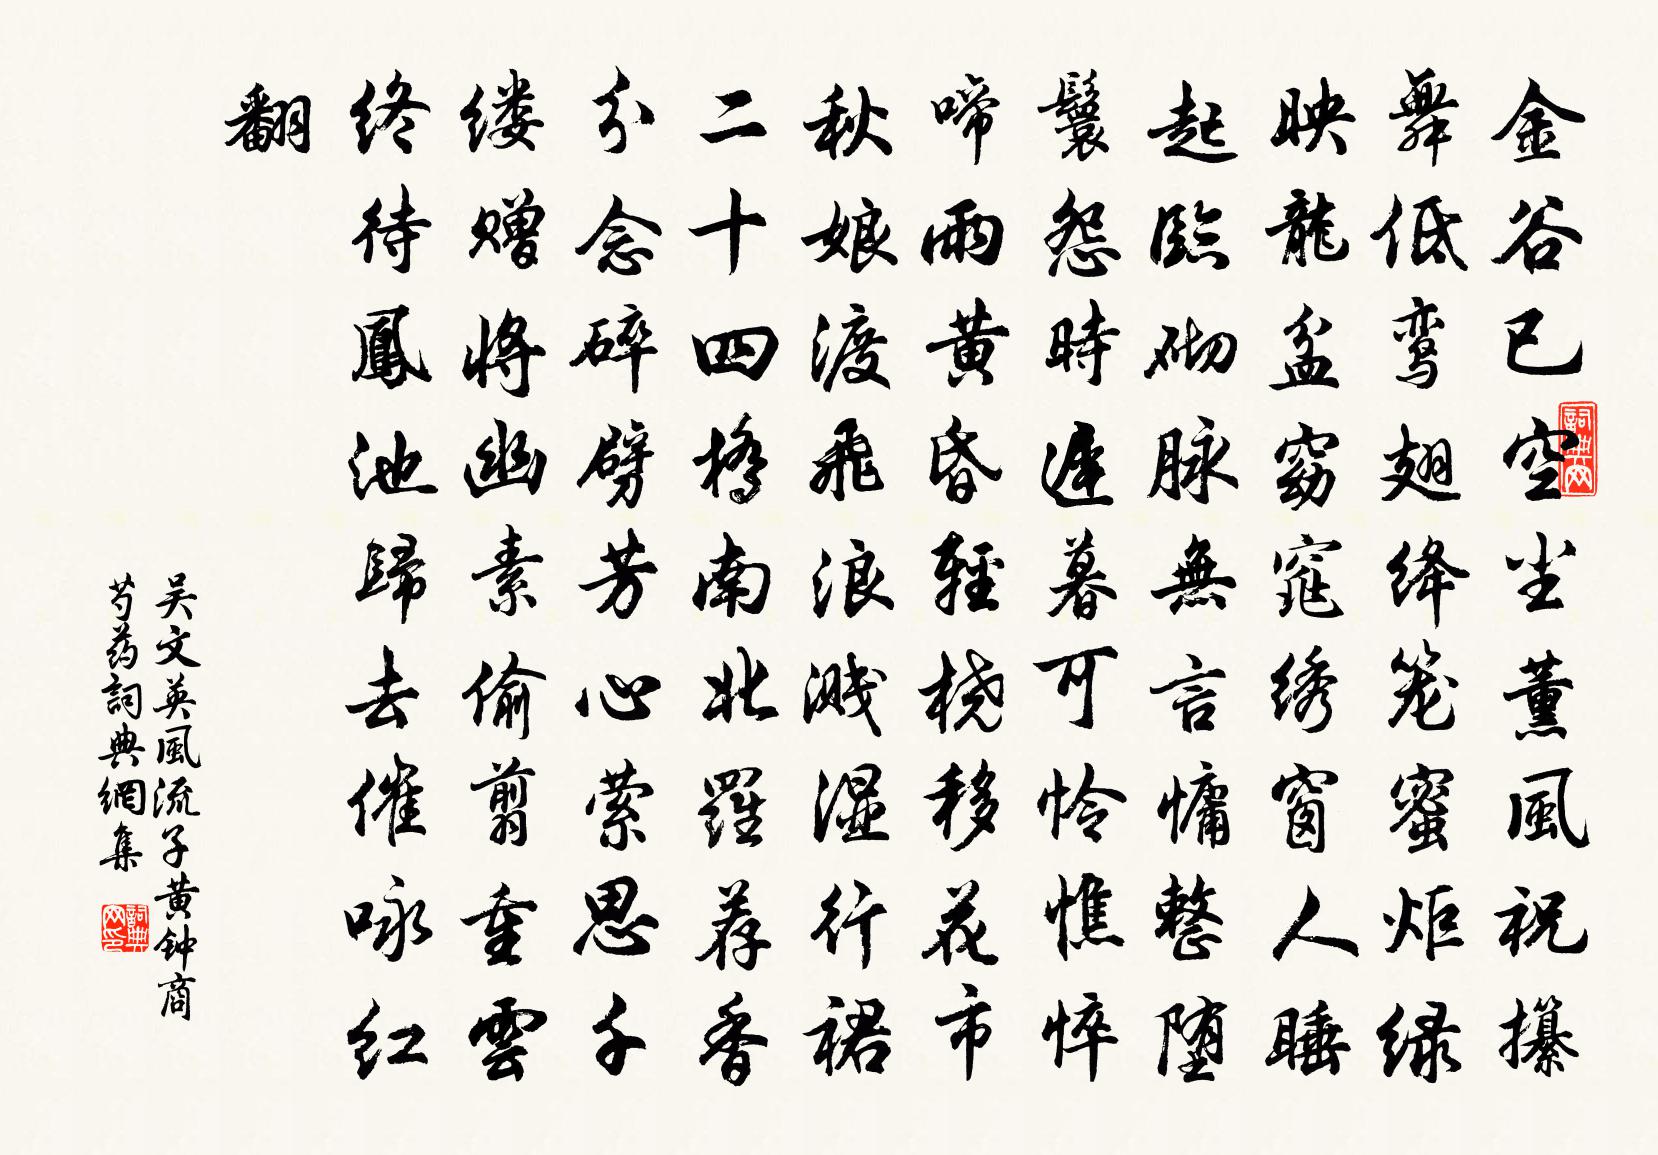 金谷已空尘薰風祝攥
舞低鸾翅绛笼蜜炬绿
映龍盆窈窕绣窗人睡
起臨砌脉無言慵整堕
鬟怨時遅暮可怜憔悴
啼雨黄昏輕桡移花市
秋娘渡飛浪溅湿行裙
二十四橋南北羅荐香
分念碎劈芳心萦思千
缕赠将幽素偷剪重雲
终待鳳池歸去催咏红
翻
吴文英風流子黄钟商
芍药詞典網集
詞典网
詞典网印